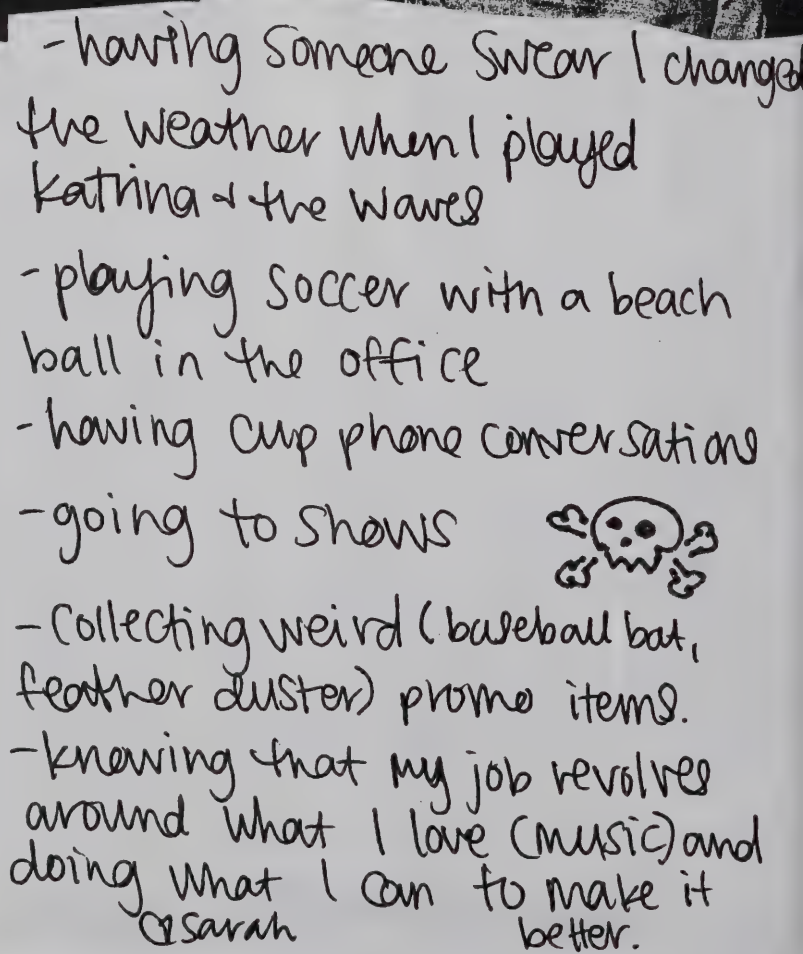 -having someone swear I changed
the weather when I played
Katrina & the waves
-playing soccer with a beach
ball in the office
-having cup phone conversations
-going to shows
-Collecting weird (baseball bat,
feather duster) promo items.
-knowing that my job revolves
around what I love (music) and
doing what I can to make it
better.
sarah